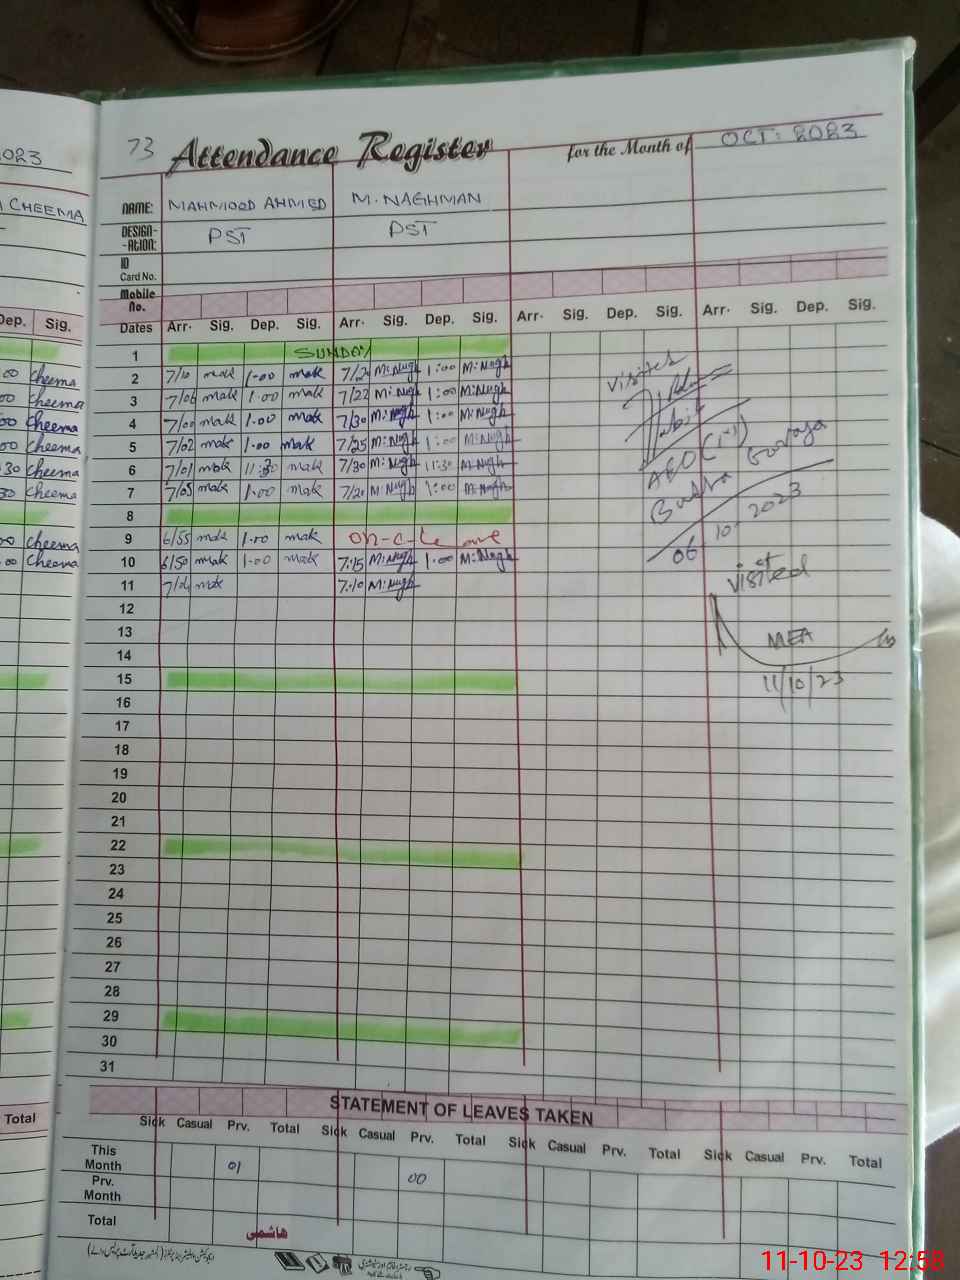 2023
73 Attendance Register for the Month of OCT: 2023
CHEEMA NAME: MAHMOOD AHMED M. NAGHMAN
DESIGN--ATION: PST PST
ID Card No.
Mobile No.
Dep. Sig. Dates Arr. Sig. Dep. Sig. Arr. Sig. Dep. Sig. Arr. Sig. Dep. Sig. Arr. Sig. Dep. Sig.
1 SUNDAY
00 Cheema 2 7/10 mak 1.00 mak 7/20 M:Nagh 1:00 M:Nagh
00 Cheema 3 7/06 mak 1.00 mak 7/22 M:Nagh 1:00 M:Nagh
00 Cheema 4 7/00 mak 1.00 mak 7/30 M:Nagh 1:00 M:Nagh
00 Cheema 5 7/02 mak 1.00 mak 7/25 M:Nagh 1:00 M:Nagh
30 Cheema 6 7/01 mak 11:30 mak 7/30 M:Nagh 11:30 M:Nagh
30 Cheema 7 7/05 mak 1.00 mak 7/20 M:Nagh 1:00 M:Nagh
8
00 Cheema 9 6/55 mak 1.00 mak on-c-leave
00 Cheema 10 6/50 mak 1.00 mak 7:15 M:Nagh 1:00 M:Nagh
11 mak 7:10 M:Nagh
visited
AEO
Budha Goraya
06.10.2023
visited
MEA
11/10/23
12
13
14
15
16
17
18
19
20
21
22
23
24
25
26
27
28
29
30
31
STATEMENT OF LEAVES TAKEN
Total Sick Casual Prv. Total Sick Casual Prv. Total Sick Casual Prv. Total Sick Casual Prv. Total
This Month 01 00
Prv. Month
Total
ہاشمی
11-10-23 12:58